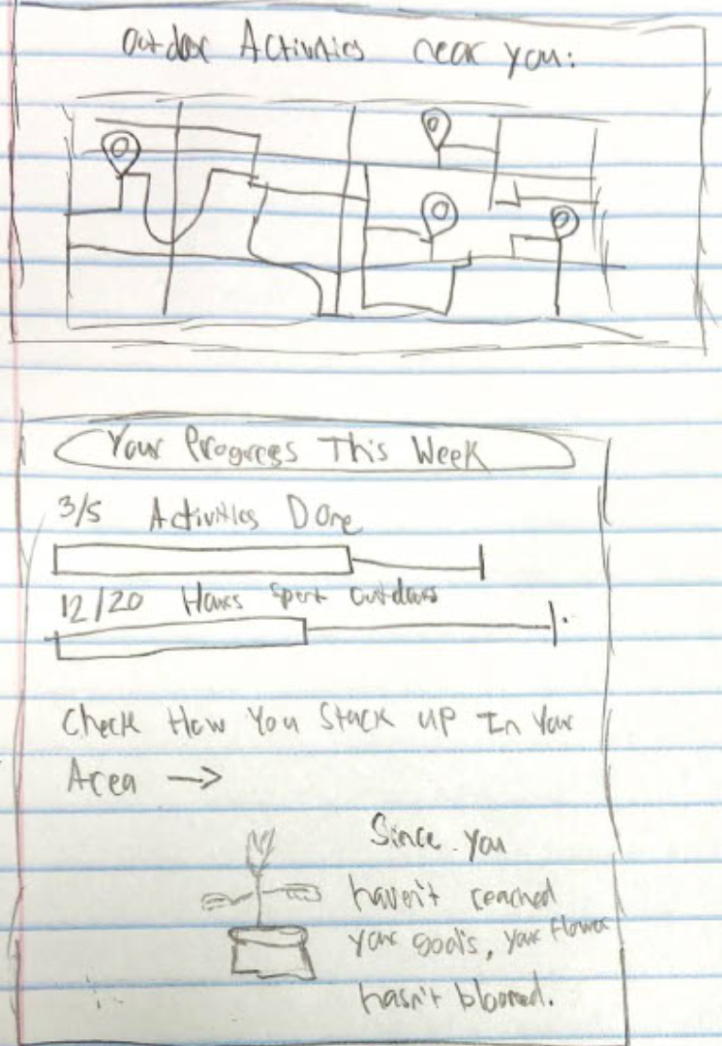 Outdoor Activities near you:
Your Progress This Week
3/5 Activities Done
12/20 Hours Spent Outdoors
Check How You Stack Up In Your
Area →
Since you
haven't reached
your goals, your flower
hasn't bloomed.